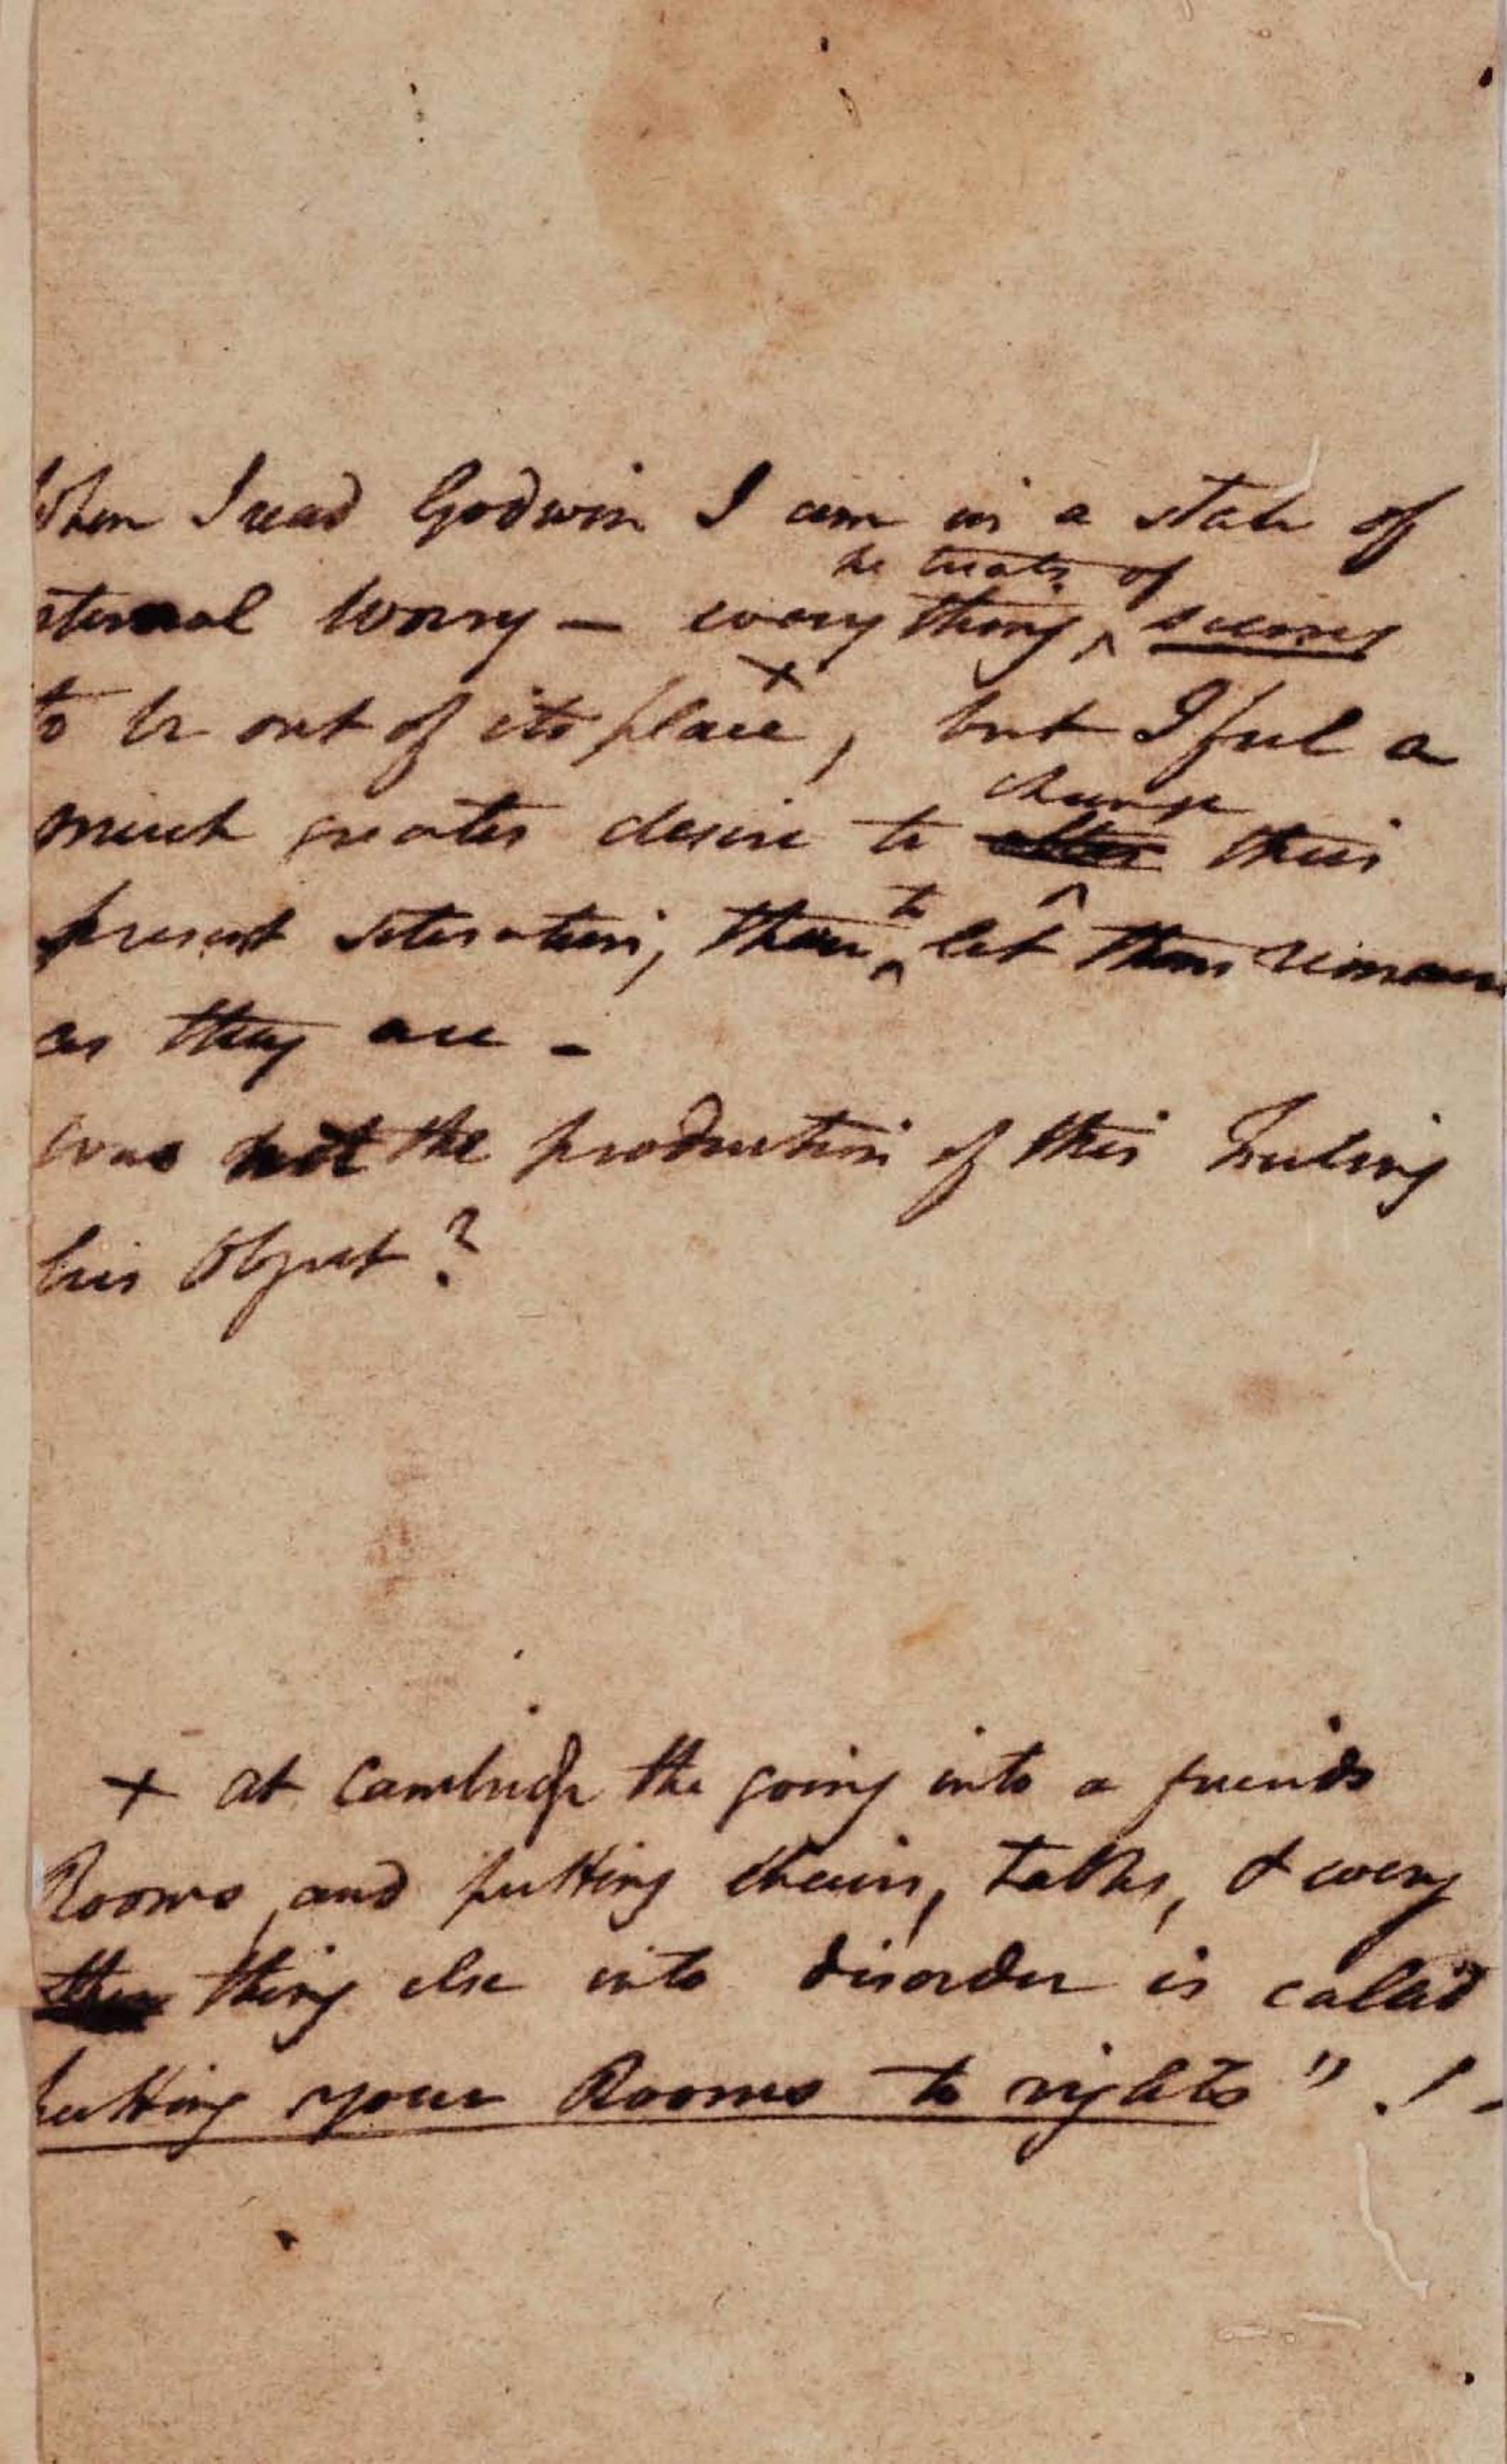 When I read Godwin I am in a state of
he treats of
eternal worry — every thing ^ seems
to be out of its place ×, but I feel a
change
much greater desire to alter their
present situation, than ^ to let them remain
as they are -
was not the production of this Feeling
his Object?
× at Cambridge the going into a friends
Rooms, and putting chairs, tables, & every
thing else into disorder is called
putting your Rooms to rights" ! -